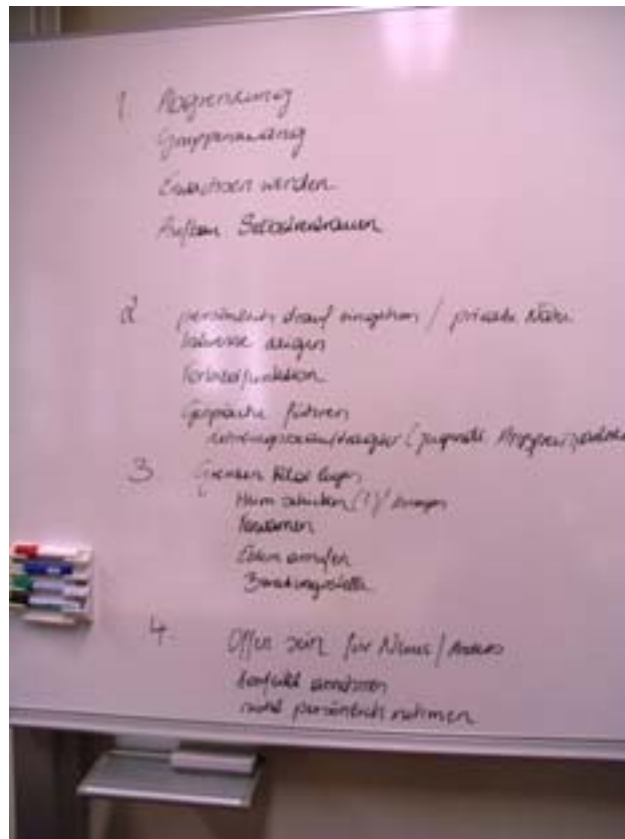 1. Abgrenzung
Gruppenzwang
Erwachsen werden
Aufbau Selbstvertrauen
2 persönlich drauf eingehen / private Nähe
Interesse zeigen
Vorbildfunktion
Gespräche führen
3 Grenzen
Heim schicken (!) /
Verwarnen
Eltern anrufen
Beratungsstelle
4. Offen sein für Neues / Anderes
annehmen
nicht persönlich nehmen